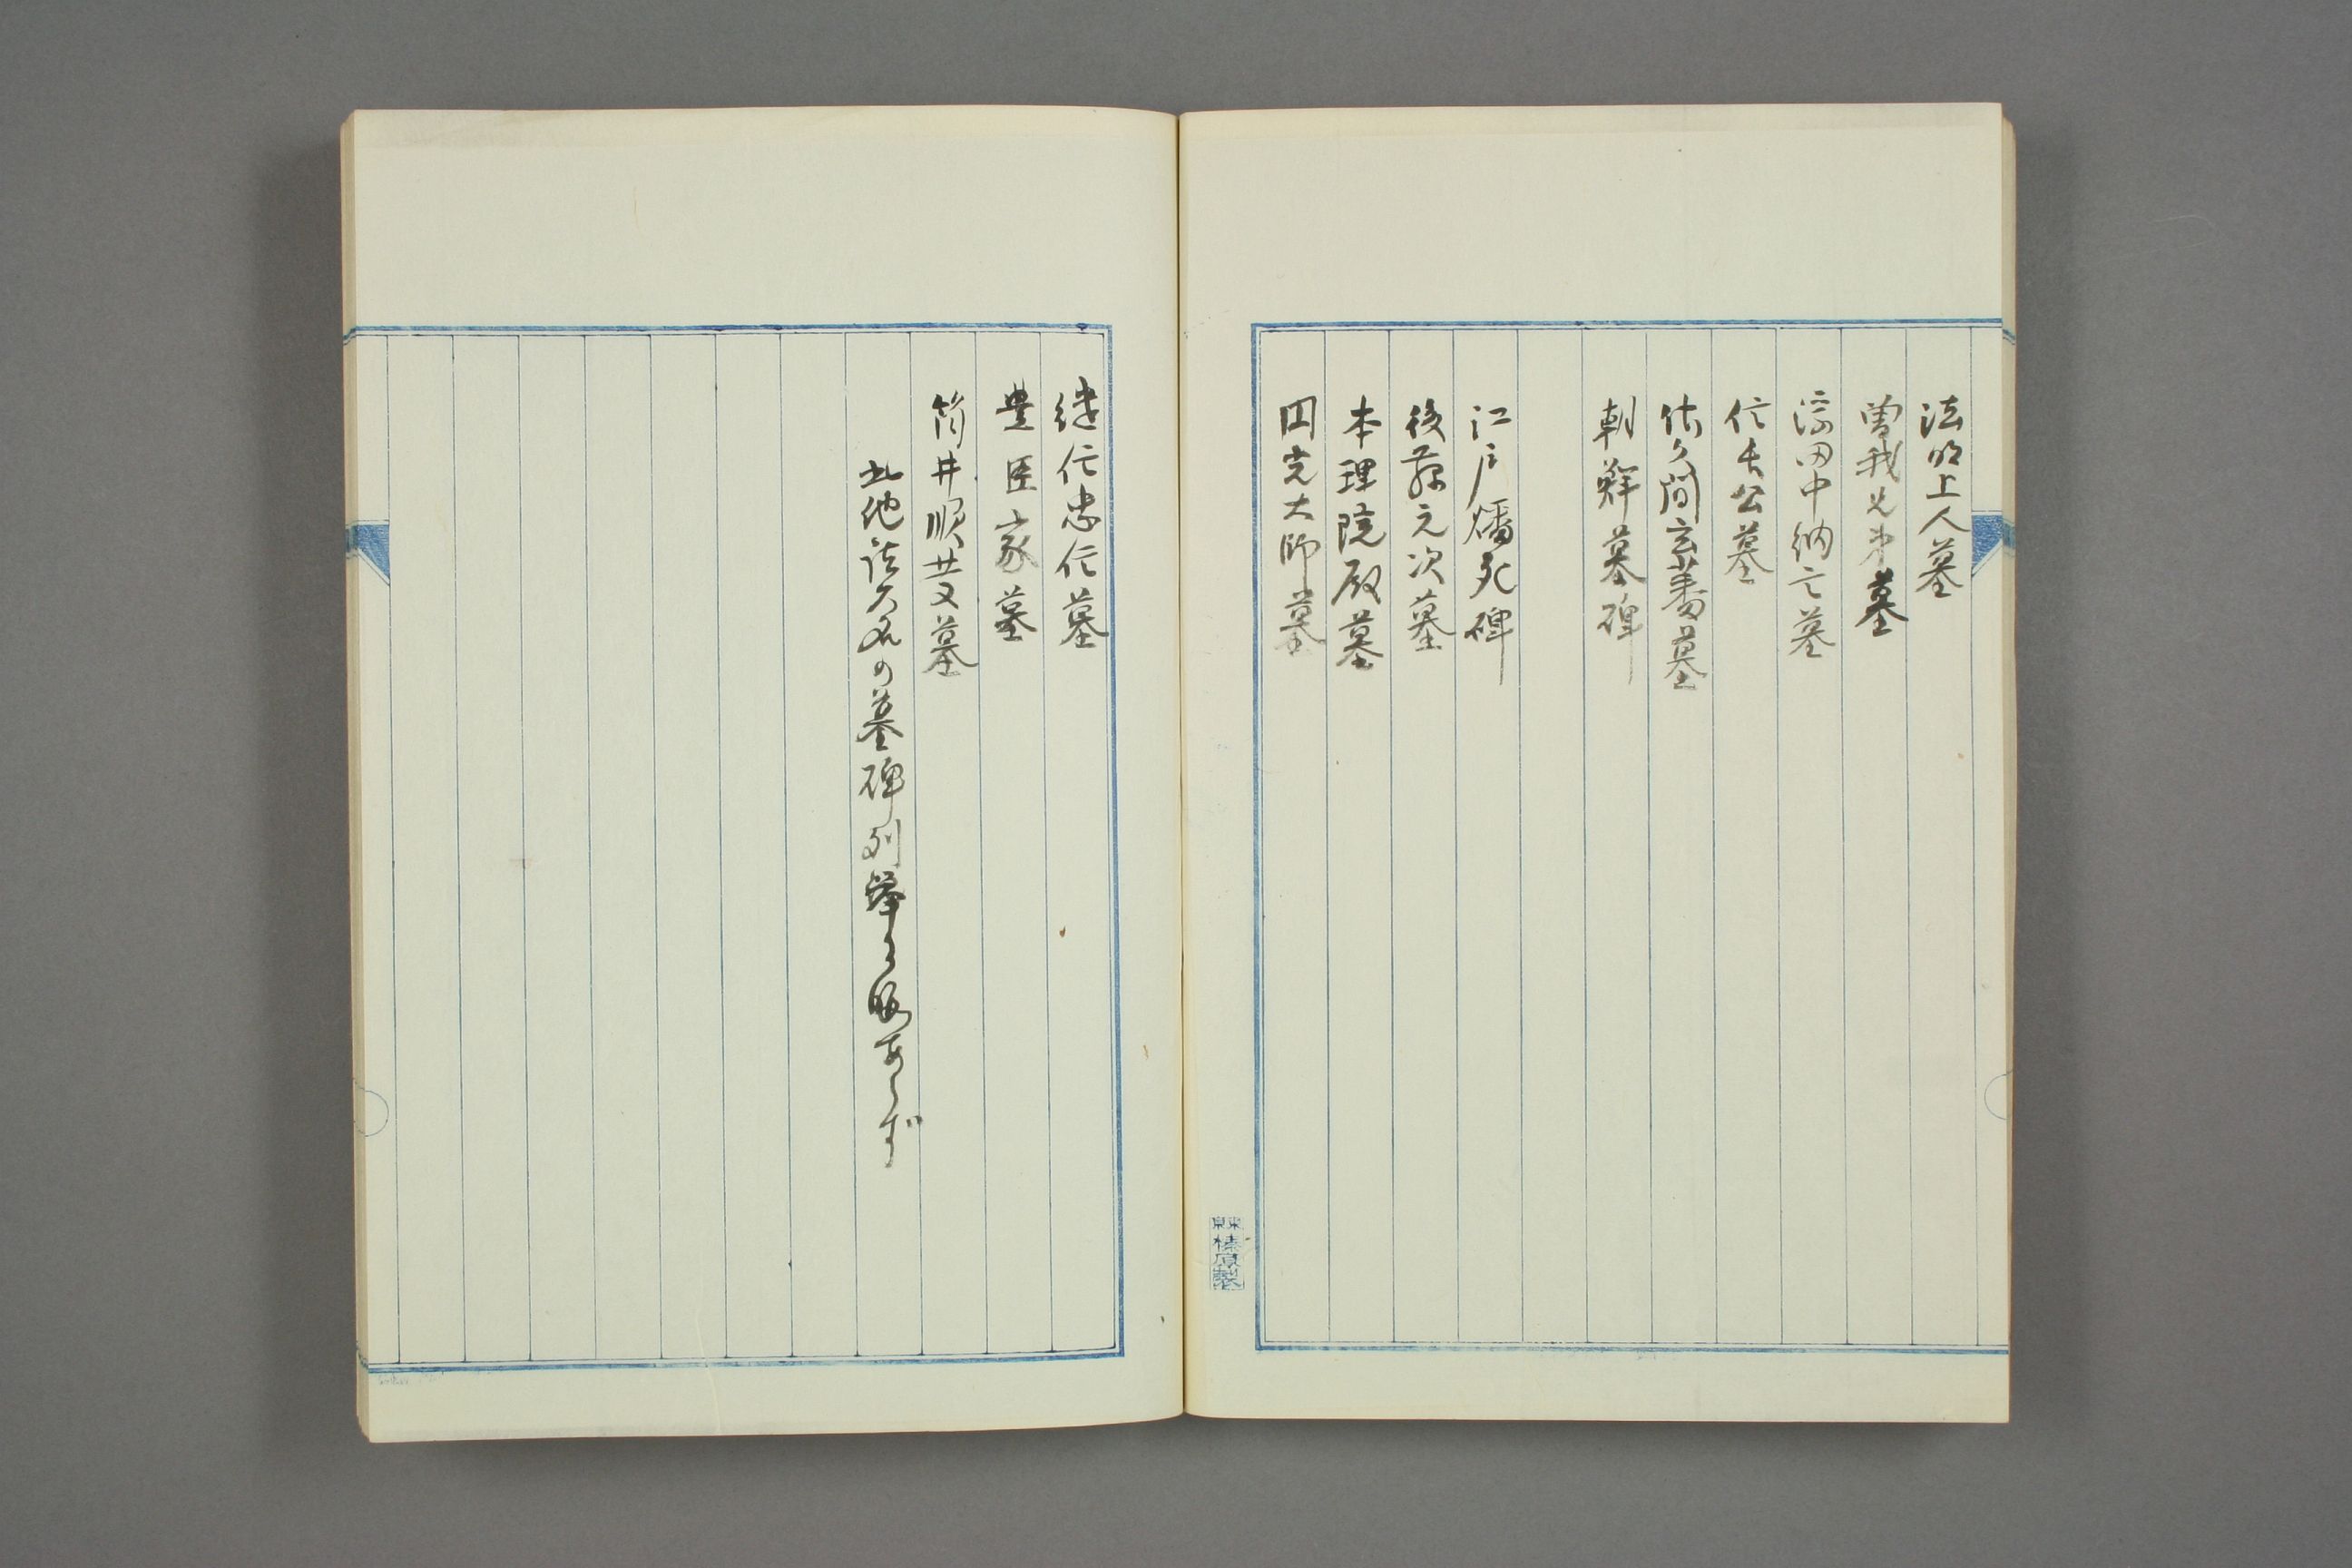 法明上人墓
曽我兄弟墓
浮田中納言墓
信長公墓
佐久間玄蕃墓
朝鮮墓碑
江戸燔死碑
後藤又次墓
本理院殿墓
円光大師墓
榛原製
継信忠信墓
豊臣家墓
筒井順慶墓
此他諸大名の墓碑列挙る暇あらず